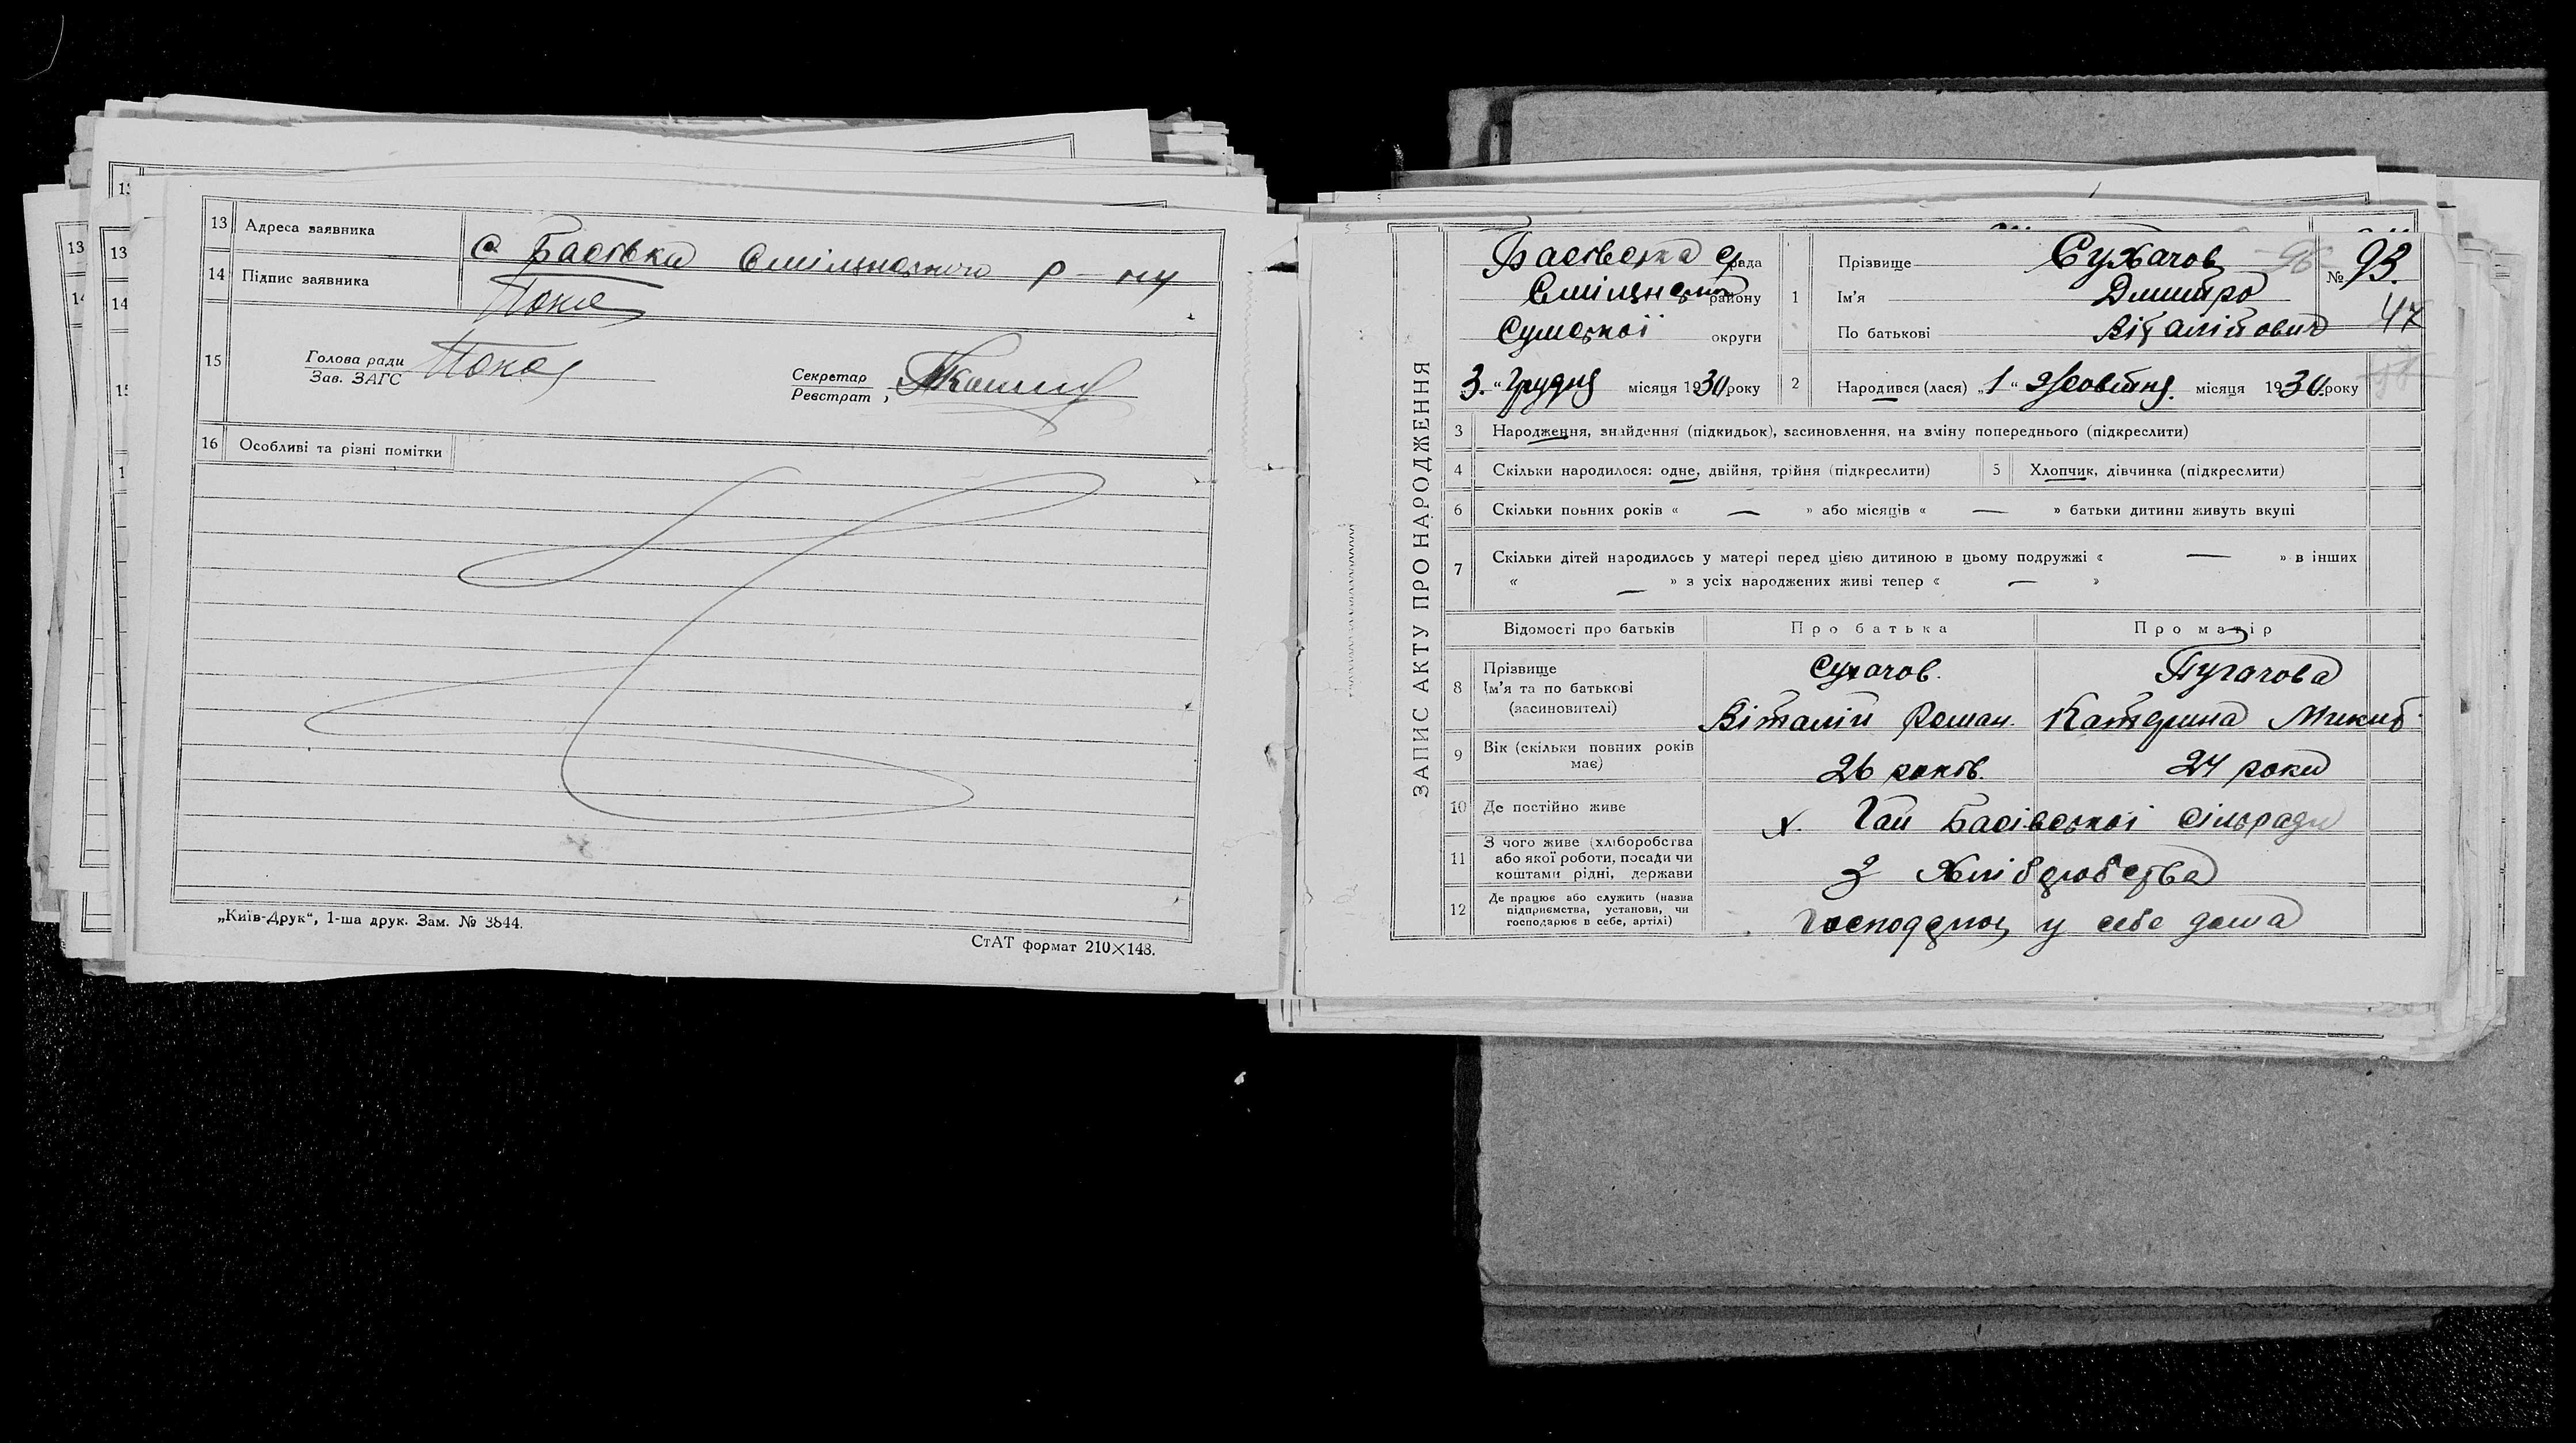 13 Адреса заявника с. Басівка Смілянського р-ну
14 Підпис заявника
15 Голова ради
Зав. ЗАГС
Секретар
Реєстрат
16 Особливі та різні помітки
„Київ-Друк“, 1-ша друк. Зам. № 3844.
СтАТ формат 210×148.
ЗАПИС АКТУ ПРО НАРОДЖЕННЯ
Басівська с рада
району
Сумської округи
3 „ Грудня місяця 1930 року
1 Прізвище Сухачов № 93.
Ім'я Дмитро
По батькові Віталійович 47
2 Народився (лася) „1“ Жовтня. місяця 1930 року
3 Народження, знайдення (підкидьок), засиновлення, на зміну попереднього (підкреслити)
4 Скільки народилося: одне, двійня, трійня (підкреслити) 5 Хлопчик, дівчинка (підкреслити)
6 Скільки повних років « — » або місяців « — » батьки дитини живуть вкупі
7 Скільки дітей народилось у матері перед цією дитиною в цьому подружжі « — » в інших
« — » з усіх народжених живі тепер « — »
Відомості про батьків Про батька Про матір
8 Прізвище Сухачов. Пугачова
Ім'я та по батькові
(засиновителі) Віталій Роман. Катерина Микит
9 Вік (скільки повних років
має) 26 років. 24 роки
10 Де постійно живе х. Гай Басівської сільради
11 З чого живе (хліборобства
або якої роботи, посади чи
коштами рідні, держави З хліборобства
12 Де працює або служить (назва
підприємства, установи, чи
господарює в себе, артілі) Господарює у себе дома